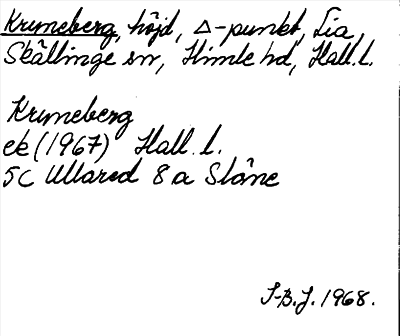 Krumeberg, höjd, Δ-punkt, Lia,
Skällinge sn, Himle hd, Hall. l.
Krumeberg
ek (1967) Hall. l.
5C Ullared 8a Slåne
S-B.J. 1968.